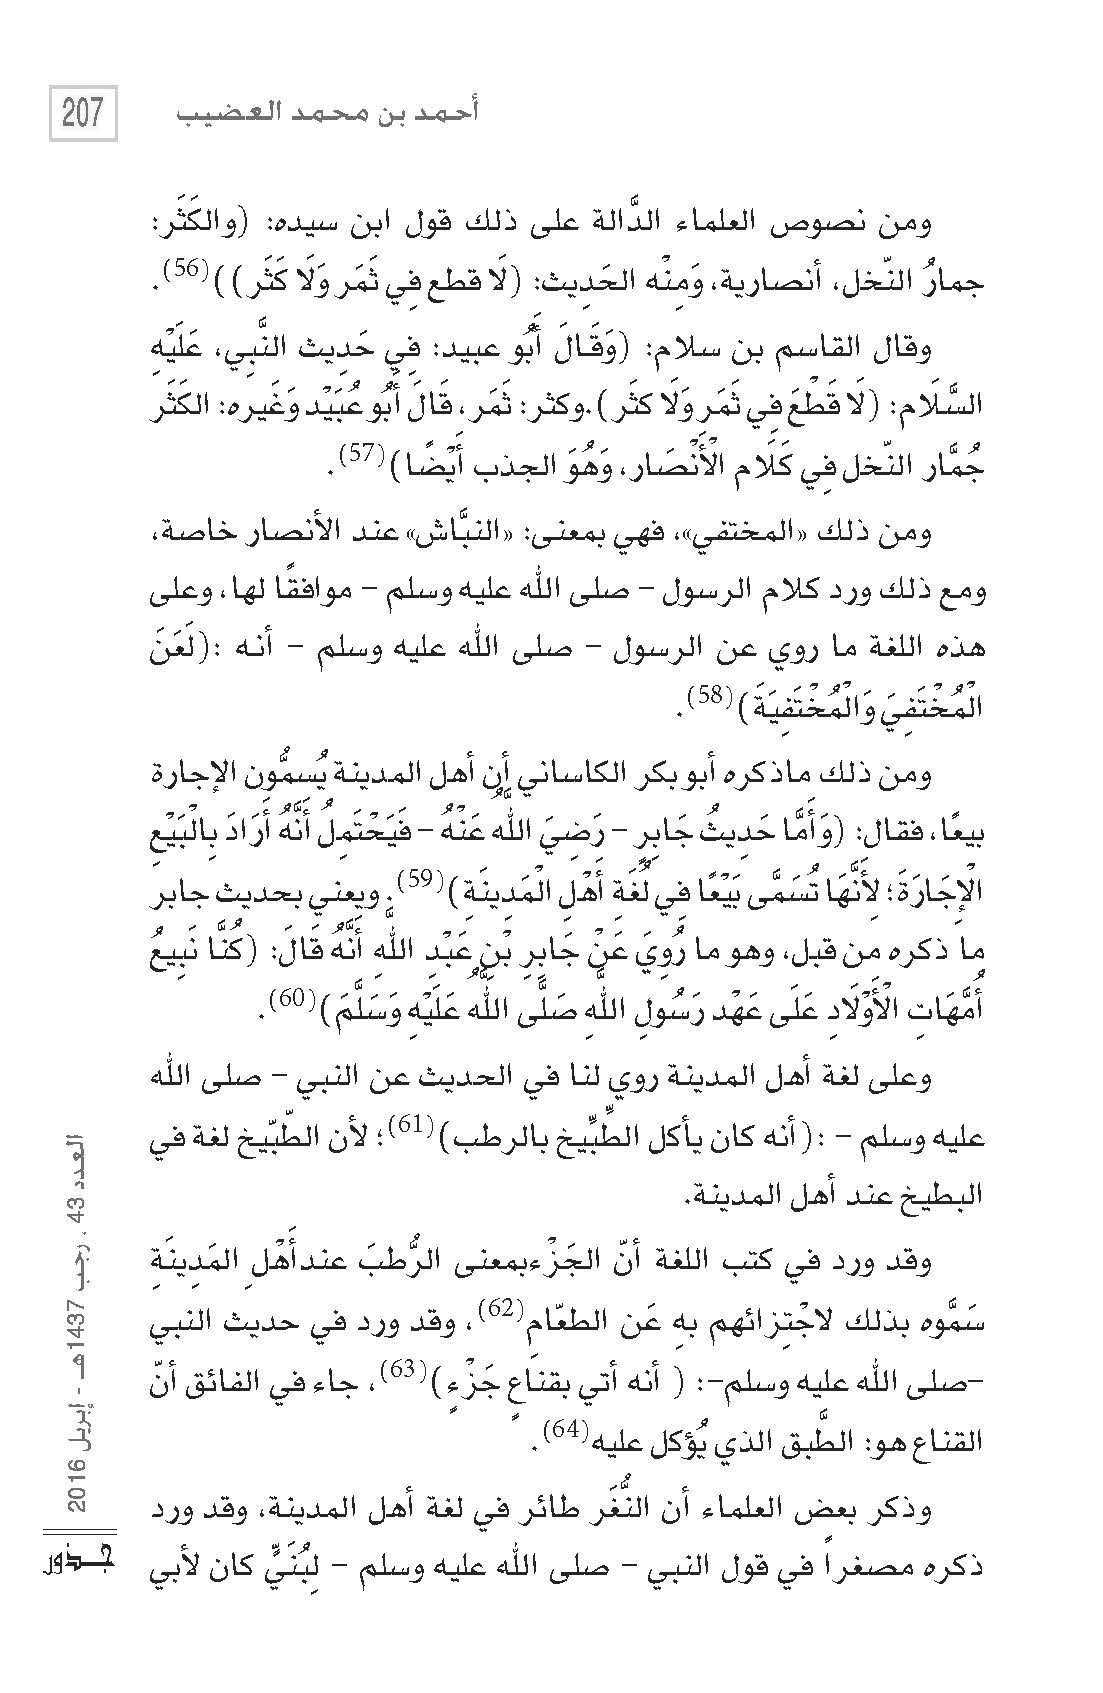 207
أحمد بن محمد العضيب
ومن نصوص العلماء الدَّالة على ذلك قول ابن سيده: (والكَثَر:
جمارُ النخّل، أنصارية، وَمِنْه الحَدِيث: (لَا قطع فِي ثَمَر وَلَا كَثَر) ) (56).
وقال القاسم بن سلام: (وَقَالَ أَبُو عبيد: فِي حَدِيث النبَّي، عَلَيْهِ
السَّلَام: (لَا قَطْعَ فِي ثَمَر وَلَا كَثَر). وكثر: ثَمَر، قَالَ أَبُو عُبَيْد وَغَيره: الكَثَر
جُمَّار النخّل فِي كَلَام الْأَنْصَار، وَهُوَ الجذب أَيْضًا) (57).
ومن ذلك «المختفي»، فهي بمعنى: «النبَّاش» عند الأنصار خاصة،
ومع ذلك ورد كلام الرسول - صلى الله عليه وسلم - موافقًا لها، وعلى
هذه اللغة ما روي عن الرسول - صلى الله عليه وسلم - أنه :(لَعَنَ
الْمُخْتَفِيَ وَالْمُخْتَفِيَةَ) (58).
ومن ذلك ماذكره أبو بكر الكاساني أن أهل المدينة يُسمُّون الإجارة
بيعًا، فقال: (وَأَمَّا حَدِيثُ جَابِرٍ - رَضِيَ اللَّهُ عَنْهُ - فَيَحْتَمِلُ أَنَّهُ أَرَادَ بِالْبَيْعِ
الْإِجَارَةَ؛ لِأَنَّهَا تُسَمَّى بَيْعًا فِي لُغَةِ أَهْلِ الْمَدِينَةِ) (59). ويعني بحديث جابر
ما ذكره من قبل، وهو ما رُوِيَ عَنْ جَابِرِ بْنِ عَبْدِ اللَّهِ أَنَّهُ قَالَ: (كُنَّا نَبِيعُ
أُمَّهَاتِ الْأَوْلَادِ عَلَى عَهْدِ رَسُولِ اللَّهِ صَلَّى اللَّهُ عَلَيْهِ وَسَلَّمَ) (60).
وعلى لغة أهل المدينة روي لنا في الحديث عن النبي - صلى الله
عليه وسلم - :(أنه كان يأكل الطِّبِّيخ بالرطب) (61)؛ لأن الطبّيّخ لغة في
البطيخ عند أهل المدينة.
وقد ورد في كتب اللغة أنّ الجَزْء بمعنى الرُّطَب عند أَهْلِ المَدِينَةِ
سَمَّوه بذلك لاجْتِزائهم بِهِ عَن الطعَّام (62)، وقد ورد في حديث النبي
-صلى الله عليه وسلم-: ( أنه أتي بقناعِ جَزْءٍ) (63)، جاء في الفائق أنّ
القناع هو: الطبَّق الذي يُؤكل عليه (64).
وذكر بعض العلماء أن النُّغَر طائر في لغة أهل المدينة، وقد ورد
ذكره مصغراً في قول النبي - صلى الله عليه وسلم - لِبُنَيٍّ كان لأبي
العدد 43 ، رجب 1437هـ - إبريل 2016
جـذور